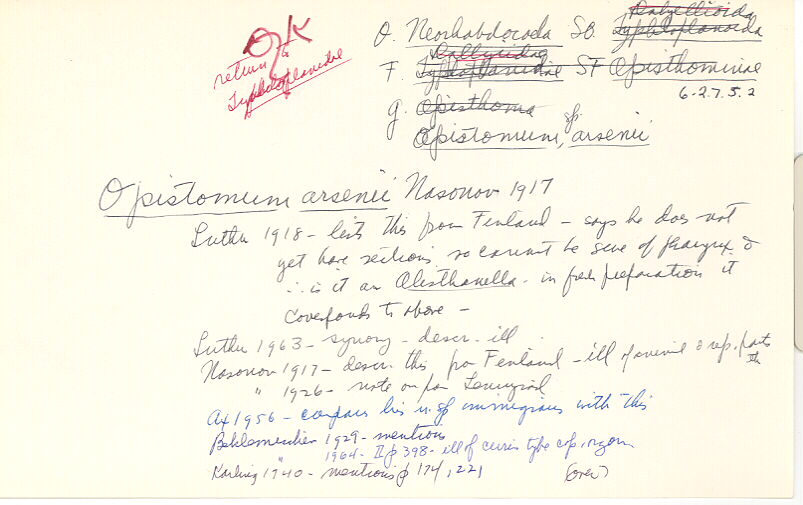 OK
return to
Typhloplanidae
O. Neorhabdocoela SO. Dalyellioida
Typhloplanoida
Dalyeliidae
F. Typhloplanidae SF Opisthominae
6-27.5.2
g. Opisthoma sp.
Opistomum, arsenii
Opistomum arsenii Nasonov 1917
Luther 1918 - lists this from Finland - says he does not
yet have sections so cannot be sure of pharynx &
∴ is it an Olisthanella - in fresh preparation it
corresponds to above -
Luther 1963 - synony - descr - ill
Nasonov 1917 - descr. this fro Finland - ill of animal & rep. parts
" 1926 - note on fro Leningrad
Ax 1956 - compares his n. sp immigrans with this
Beklemischev 1929 - mentions
" 1964 - II p 398 - ill of cirrus type cop. organ
Karling 1940 - mentions p 174, 221 (over)